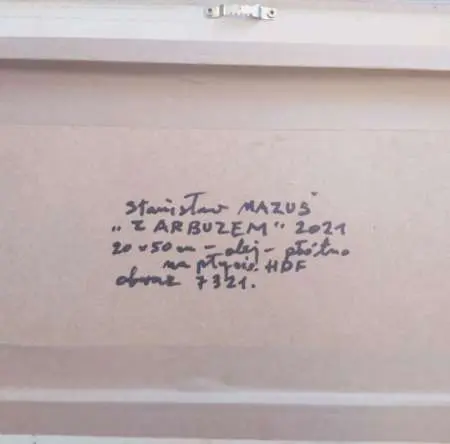 Stanisław MAZUŚ
„Z ARBUZEM" 2021
20 x 50 cm - olej - płótno
na płycie HDF
obraz 7321.